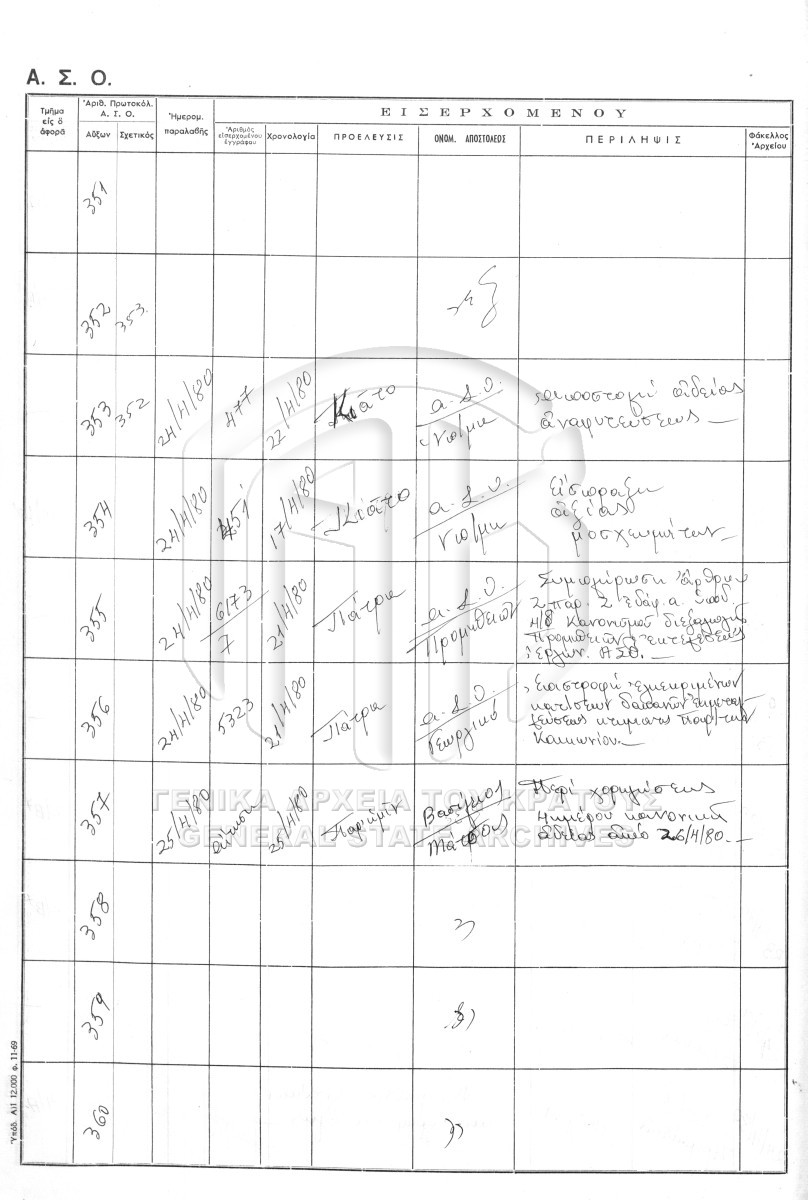 Α. Σ. Ο.
Τμῆμα εἰς ὃ ἀφορᾶ
Ἀριθ. Πρωτοκόλ. Α. Σ. Ο.
Αὔξων Σχετικός
Ἡμερομ. παραλαβῆς
ΕΙΣΕΡΧΟΜΕΝΟΥ
Ἀριθμὸς εἰσερχομένου ἐγγράφου
Χρονολογία
ΠΡΟΕΛΕΥΣΙΣ
ΟΝΟΜ. ΑΠΟΣΤΟΛΕΩΣ
ΠΕΡΙΛΗΨΙΣ
Φάκελλος Ἀρχείου
351
352 353.
353 352 24/4/80 477 22/4/80 Κιᾶτο Α.Σ.Ο. ἀποστολή ἀδείας
ἀναφυτεύσεως
354 24/4/80 451 17/4/80 Κιᾶτο Α.Σ.Ο. Εἴσπραξη
ἀξίας
μοσχευμάτων
355 24/4/80 6173/7 21/4/80 Πάτρα Α.Σ.Ο. Προμηθειῶν Συμπλήρωση ἄρθρου
2 παρ. 2 ἐδάφ. α
Κανονισμοῦ διεξαγωγῆς
Προμηθειῶν ἐκτελέσεως
ἔργων ΑΣΟ.
356 24/4/80 5323 21/4/80 Πάτρα Α.Σ.Ο. Γεωργικό Ἐπιστροφή ἐγκεκριμένων
δαπανῶν
357 25/4/80 αἴτηση 25/4/80 Παρ' ἡμῖν Περί χορηγήσεως
κανονικῆς
ἀδείας ἀπό 26/4/80.
358
359
360
ΓΕΝΙΚΑ ΑΡΧΕΙΑ ΤΟΥ ΚΡΑΤΟΥΣ
GENERAL STATE ARCHIVES
Ὑπόδ. Α)1 12.000 φ. 11-69